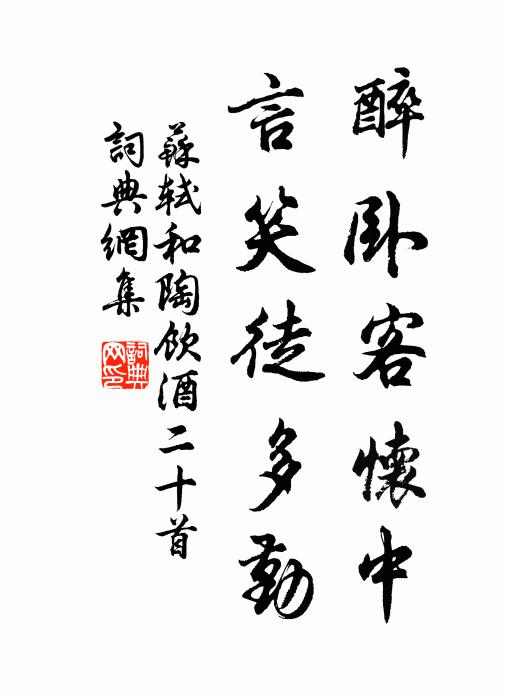 醉卧客懷中
言笑徒多勤
蘇軾和陶飲酒二十首
詞典網集
詞典網印